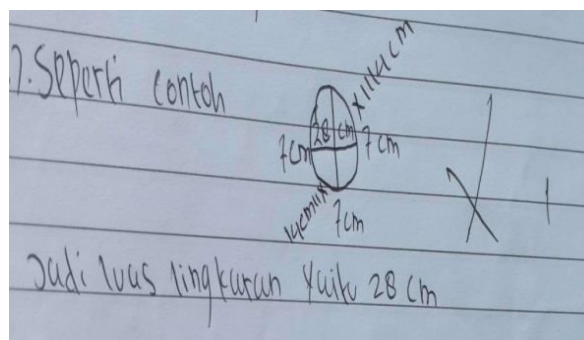 7. Seperti contoh
28 cm
7 cm
7 cm
7 cm
Jadi luas lingkaran yaitu 28 cm
1